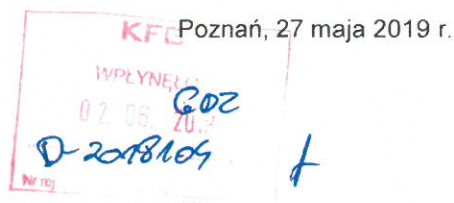 KFC
Poznań, 27 maja 2019 r.
WPŁYNĘŁO
02. 06. 20
GDZ
D-2018104
Nr rej